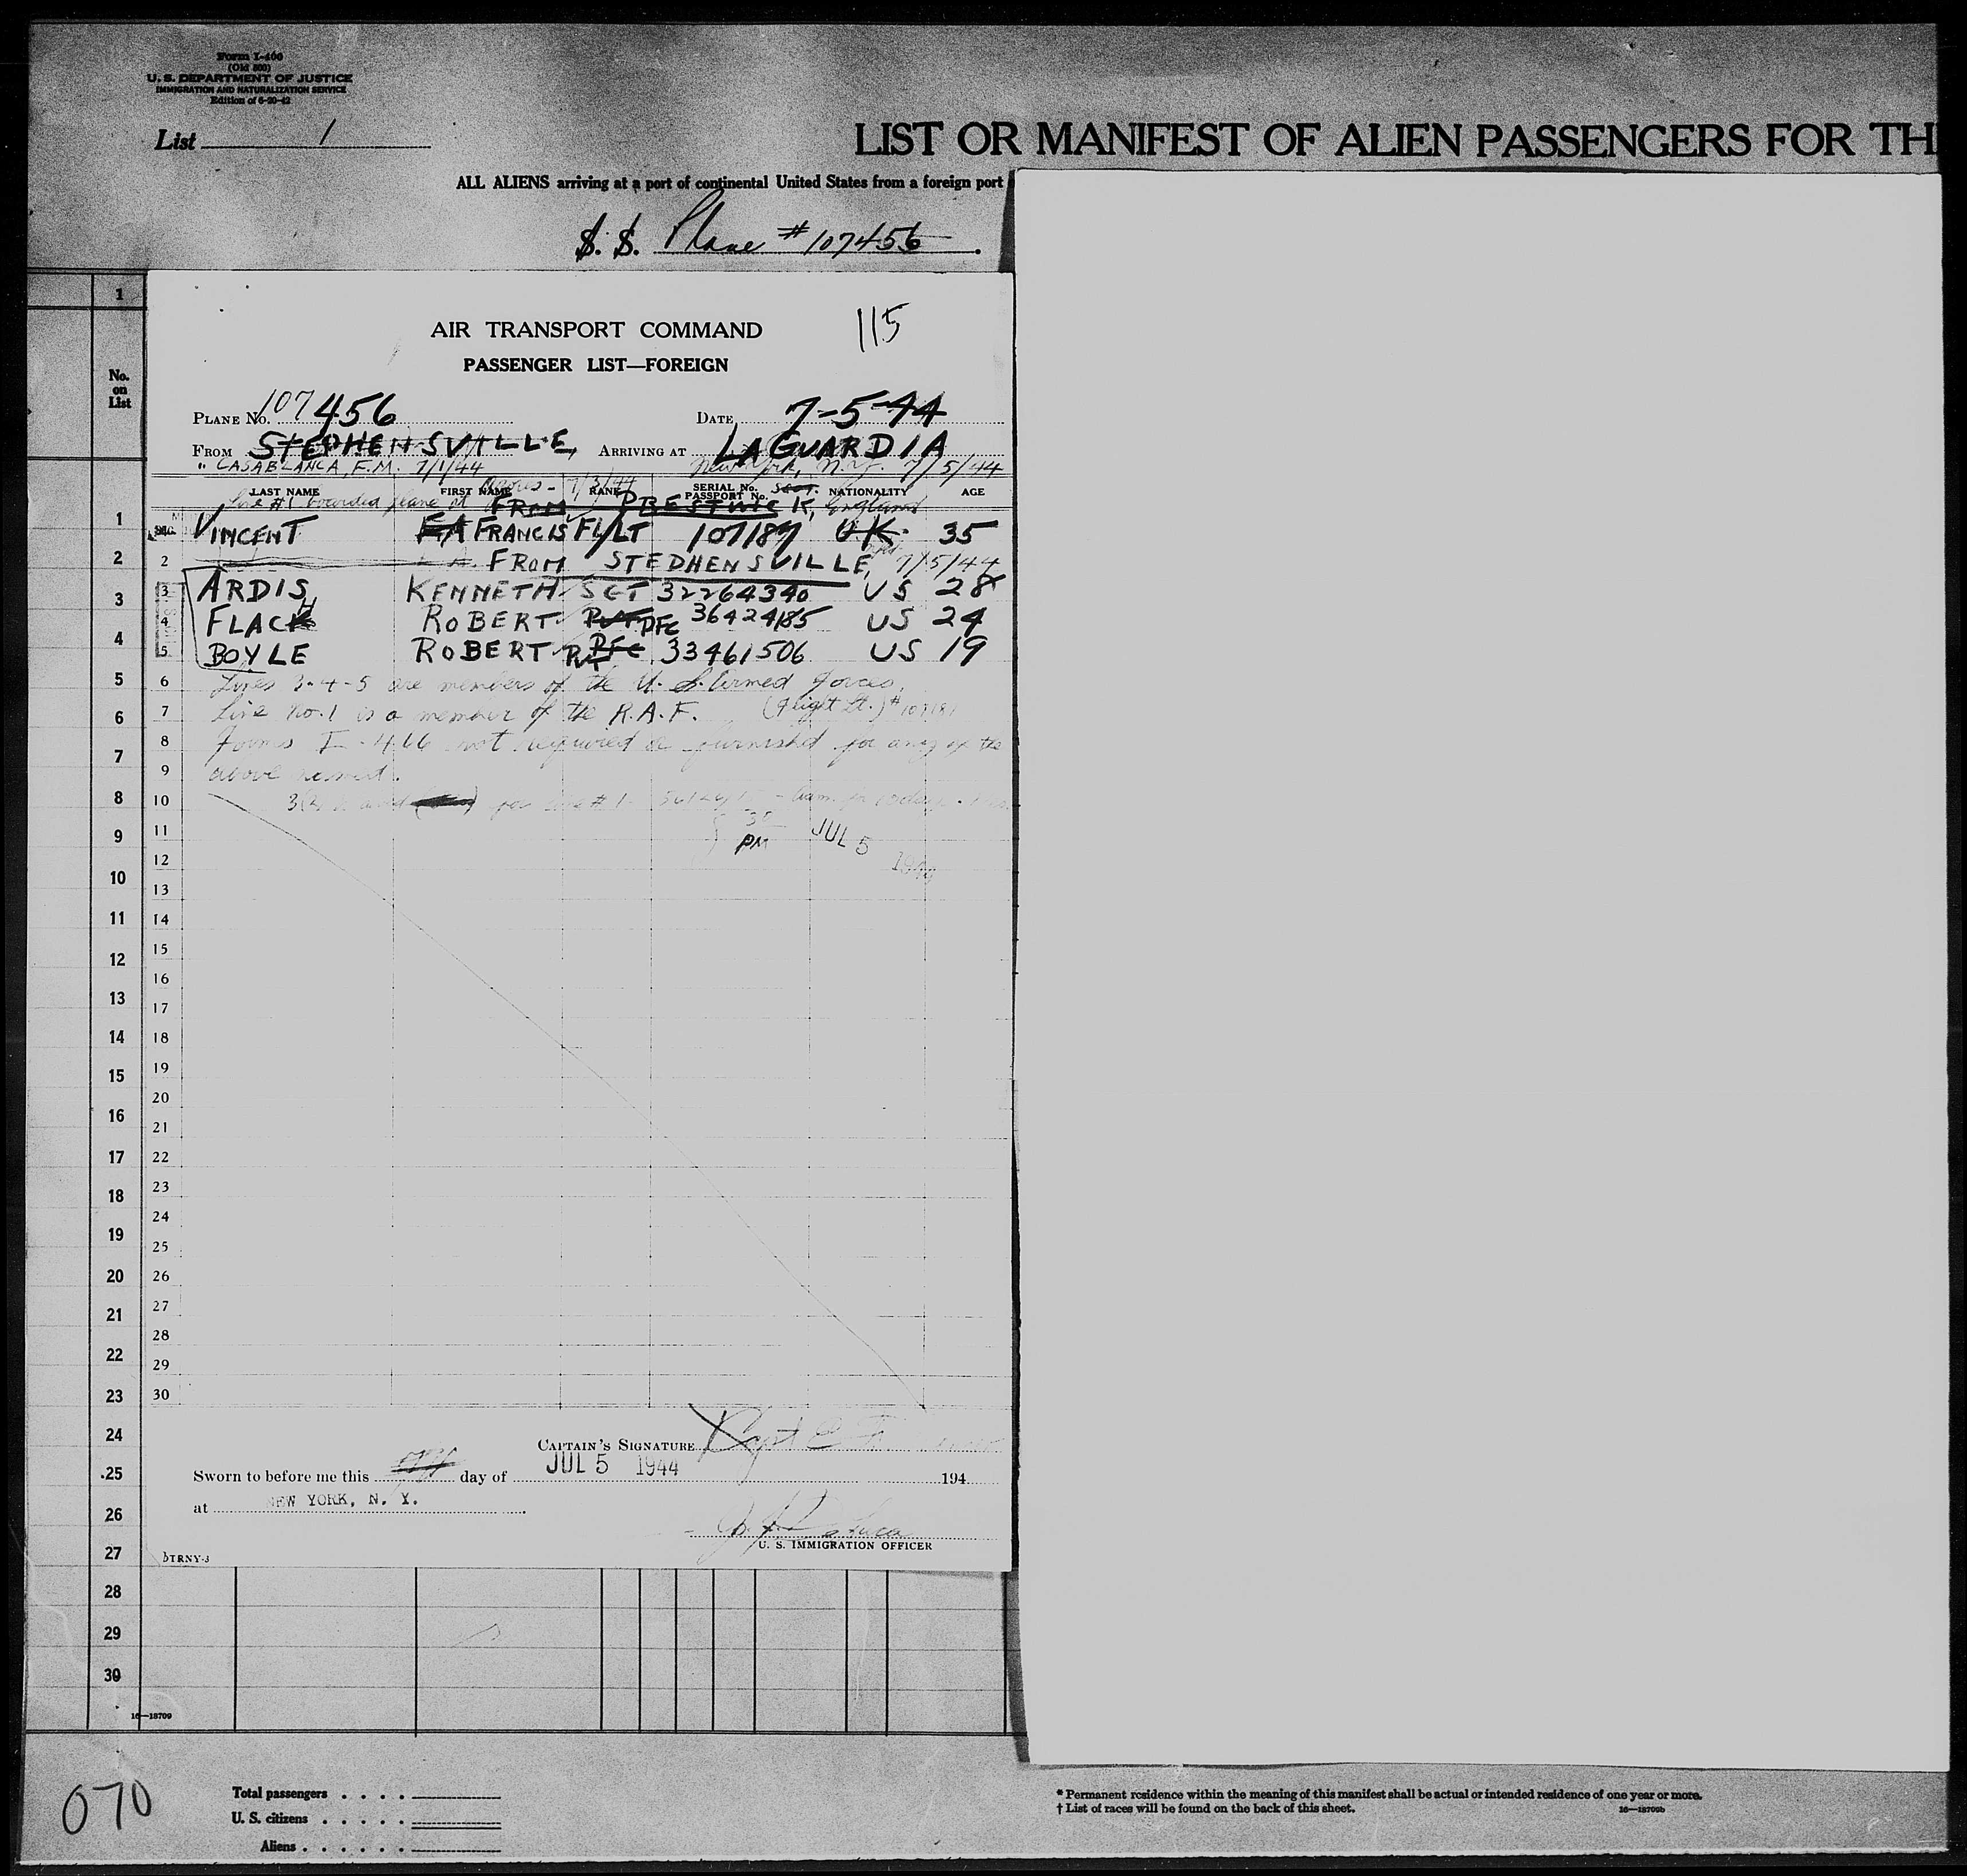 Form I-466
(Old 500)
U. S. DEPARTMENT OF JUSTICE
IMMIGRATION AND NATURALIZATION SERVICE
Edition of 6-20-42
List 1
LIST OR MANIFEST OF ALIEN PASSENGERS FOR TH
ALL ALIENS arriving at a port of continental United States from a foreign port
S. S. Plane # 107456
AIR TRANSPORT COMMAND 115
PASSENGER LIST—FOREIGN
No. on List
PLANE No. 107456 DATE 7-5-44
FROM STEPHENSVILLE, ARRIVING AT LAGUARDIA
" CASABLANCA, F.M. 7/1/44 New York, N.Y. 7/5/44
Azores - 7/3/44
LAST NAME FIRST NAME RANK SERIAL No. PASSPORT No. NATIONALITY AGE
Line #1 boarded plane at FROM PRESTWICK, Scot. England
VINCENT FA FRANCIS FL/LT 107187 UK 35
FROM STEPHENSVILLE, 7/5/44
ARDIS KENNETH SGT 32264340 US 28
FLACK ROBERT PVT PFC 36424185 US 24
BOYLE ROBERT PVT PFC 33461506 US 19
Lines 3-4-5 are members of the U. S. Armed Forces.
Line No. 1 is a member of the R.A.F. (Flight Lt.) # 107187
Forms I-466 not required or furnished for any of the
above named.
3(2) for line #1
30
PM JUL 5 1944
1
2
3
4
5
6
7
8
9
10
11
12
13
14
15
16
17
18
19
20
21
22
23
24
25
26
27
28
29
30
CAPTAIN'S SIGNATURE X Capt
Sworn to before me this day of JUL 5 1944 194
at NEW YORK, N. Y.
U. S. IMMIGRATION OFFICER
DTRNY-3
1
1
2
3
4
5
6
7
8
9
10
11
12
13
14
15
16
17
18
19
20
21
22
23
24
25
26
27
28
29
30
16—18709
070
Total passengers
U. S. citizens
Aliens
* Permanent residence within the meaning of this manifest shall be actual or intended residence of one year or more.
† List of races will be found on the back of this sheet. 16—18709b